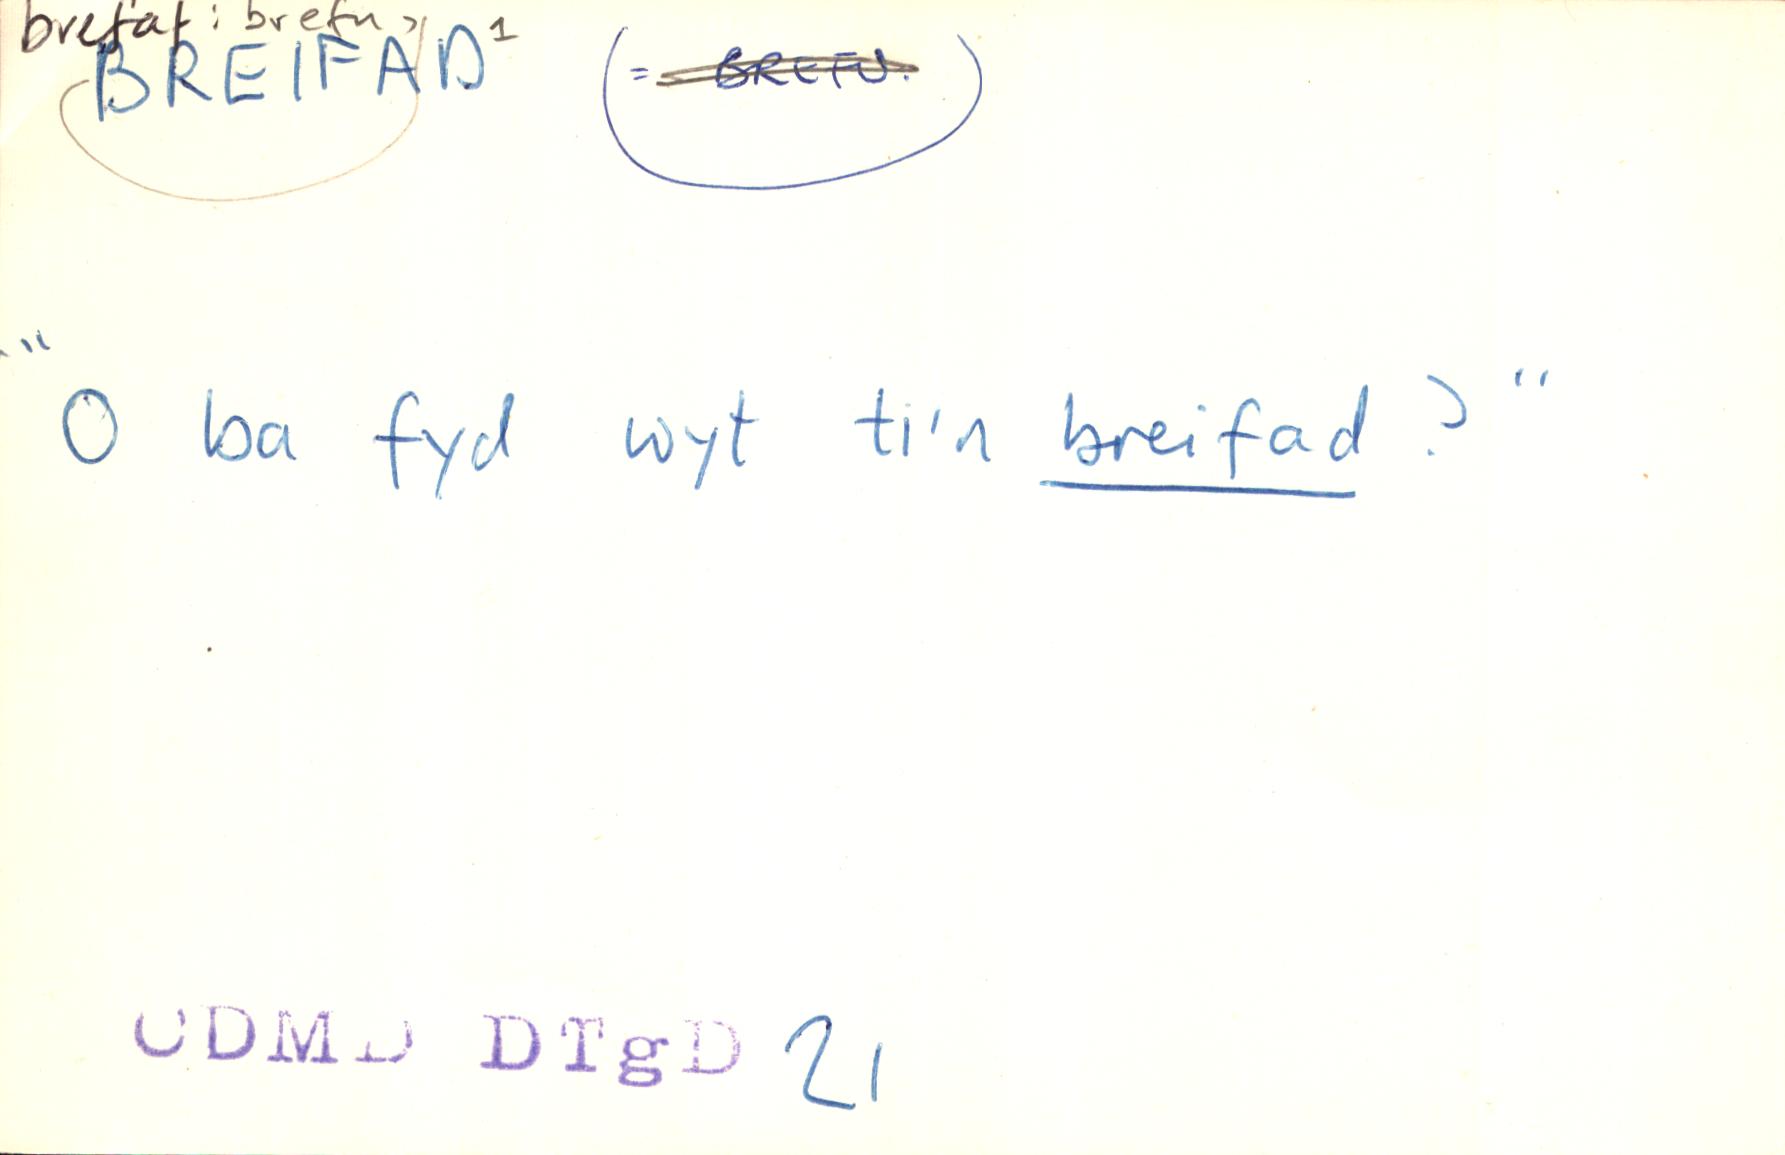 brefaf: brefu,
BREIFAD¹ (= BREFU.)
"O ba fyd wyt ti'n breifad?"
DTgD 21